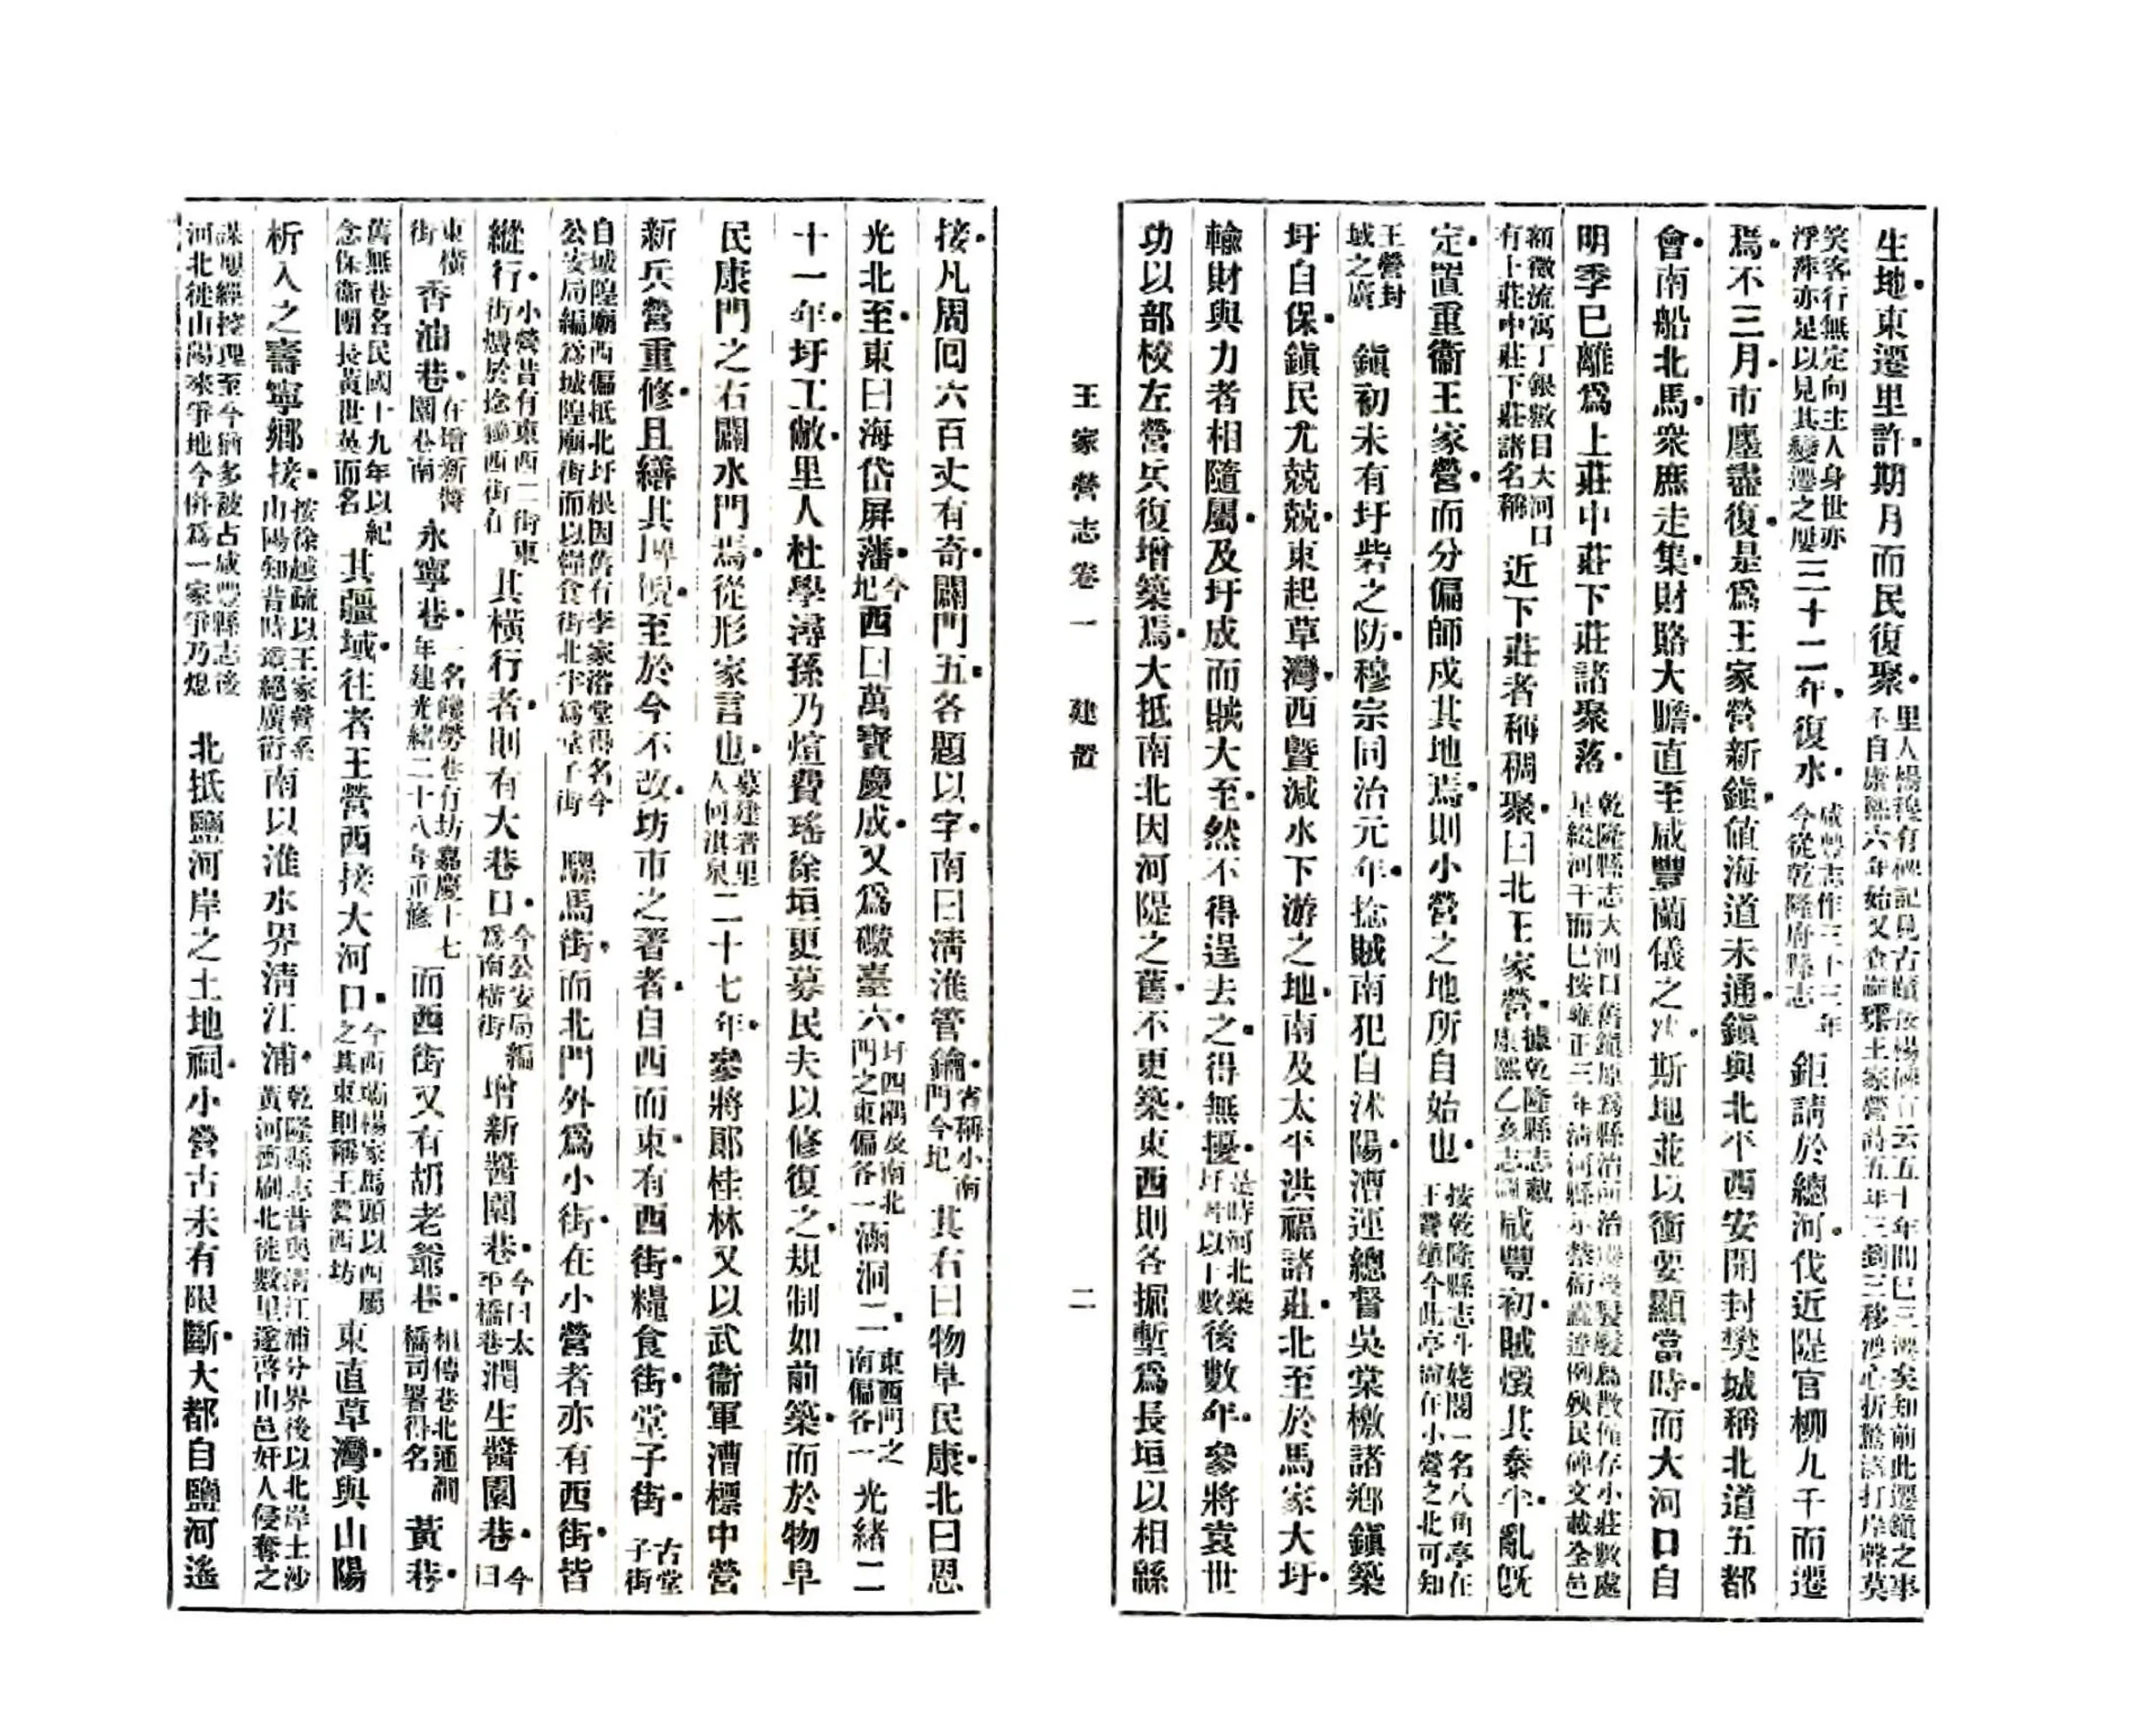 生地東遷里許期月而民復聚里人楊穆有碑記見古蹟按楊碑首云五十年間已三濟矣知前此遷鎮之事不自康熙六年始又查王家營詩五年三三移心折驚濤打岸聲莫
笑客行無定向主人身世亦浮萍亦足以見其變遷之屢三十二年復水咸豐志作三十三年今從乾隆府縣志鉅請於總河伐近隄官柳九千而遷
焉不三月市廛盡復是為王家營新鎮值海道未通鎮與北平西安開封樊城稱北道五都
會南船北馬衆庶走集財賂大贍直至咸豐蘭儀之決斯地並以衝要顯當時而大河口自
明季已離為上莊中莊下莊諸聚落乾隆縣志大河口舊鎮原為縣治所治後為散存小莊數處星綴河干而已按雍正三年清河縣示禁衙蠹違例殃民碑文載全邑
額徵流寓丁銀數目大河口有上莊中莊下莊諸名稱近下莊者稱稠聚曰北王家營據乾隆縣志載康熙乙亥志圖咸豐初賊燬其泰半亂旣
定置重衞王家營而分偏師戍其地焉則小營之地所自始也按乾隆縣志斗姥閣一名八角亭在王營鎮今此亭尚在小營之北可知
王營封域之廣鎮初未有圩砦之防穆宗同治元年捻賊南犯自沭陽漕運總督吳棠檄諸鄉鎮築
圩自保鎮民尤兢兢東起草灣西暨減水下游之地南及太平洪福諸莊北至於馬家大圩
輸財與力者相隨屬及圩成而賊大至然不得逞去之得無擾是時河北築圩以十數後數年參將袁世
功以部校左營兵復增築焉大抵南北因河隄之舊不更築東西則各掘塹為長垣以相緜
王家營志卷一 建置 二
接凡周回六百丈有奇闢門五各題以字南曰淸淮管鑰省稱小南門今圮其右曰物阜民康北曰恩
光北至東曰海岱屏藩今圮西曰萬寶慶成又為礮臺六圩四隅及南北門之東偏各一涵洞二東西門之南偏各一光緒二
十一年圩工敝里人杜學潯孫乃煊費瑤徐垣更募民夫以修復之規制如前築而於物阜
民康門之右闢水門焉從形家言也募建者里人何淇泉二十七年參將鄖桂林又以武衞軍漕標中營
新兵營重修且繕其埤堄至於今不改坊市之著者自西而東有西街糧食街堂子街古堂子街
自城隍廟西偏抵北圩根因舊有李家浴堂得名今公安局編為城隍廟街而以糧食街北半為堂子街騾馬街而北門外為小街在小營者亦有西街皆
縱行小營昔有東西二街東街燬於捻獨西街在其橫行者則有大巷口今公安局編為南橫街增新醬園巷今曰太平橋巷潤生醬園巷今曰
東橫街香油巷在增新醬園巷南永寧巷一名隆勞巷有坊嘉慶十七年建光緒二十八年重修而西街又有胡老爺巷相傳巷北通澗橋司署得名黃巷
舊無巷名民國十九年以紀念保衞團長黃世英而名其疆域往者王營西接大河口今西壩楊家馬頭以西屬之其東則稱王營西坊東直草灣與山陽
析入之壽寧鄉接按徐越疏以王家營系山陽知昔時遼絕廣衍南以淮水界淸江浦乾隆縣志昔與淸江浦分界後以北岸土沙黃河衝刷北徙數里遂啓山邑奸人侵奪之
謀屢經控理至今猶多被占咸豐縣志後河北徙山陽來爭地今併為一家爭乃熄北抵鹽河岸之土地祠小營古未有限斷大都自鹽河遙